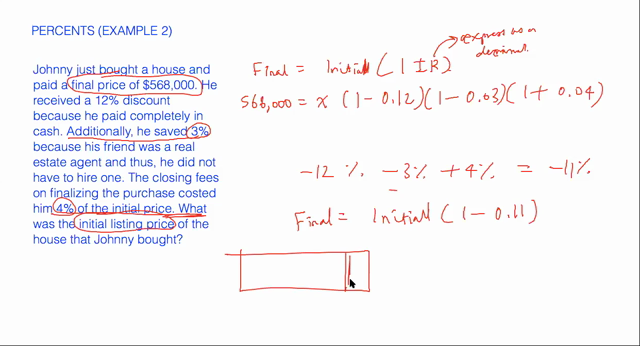 PERCENTS (EXAMPLE 2)
Johnny just bought a house and
paid a final price of $568,000. He
received a 12% discount
because he paid completely in
cash. Additionally, he saved 3%
because his friend was a real
estate agent and thus, he did not
have to hire one. The closing fees
on finalizing the purchase costed
him 4% of the initial price. What
was the initial listing price of the
house that Johnny bought?
express as a
decimal.
Final = Initial (1 ± R)
568,000 = x (1 - 0.12)(1 - 0.03)(1 + 0.04)
-12 % -3% +4% = -11%
Final = Initial (1 - 0.11)